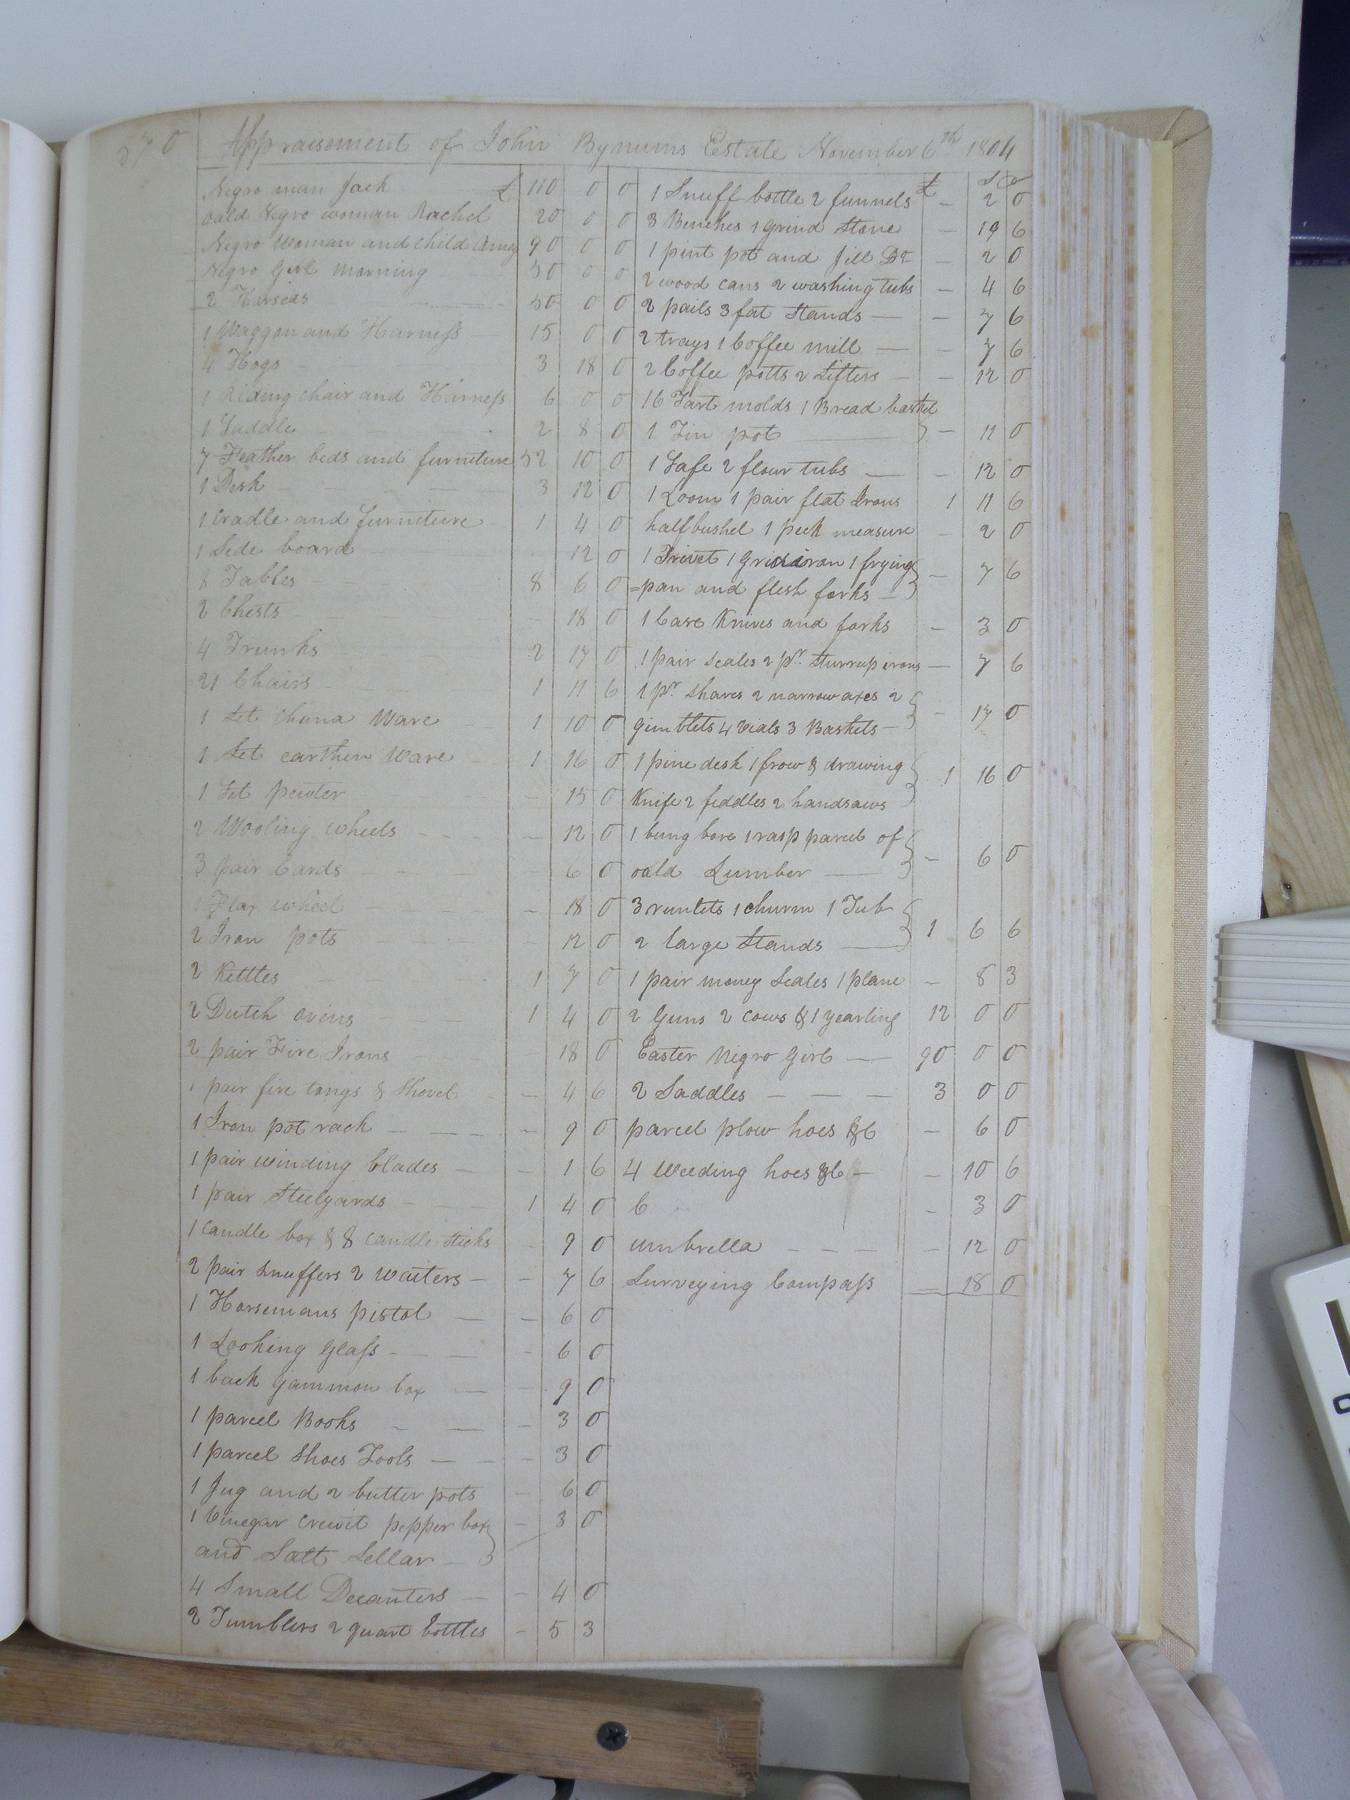 570
Appraisement of John Bynums Estate November 6th 1804
Negro man Jack £ 110 0 0
oald Negro woman Rachel 20 0 0
Negro Woman and child Amey 90 0 0
Negro Girl Morning 50 0 0
2 Horses 50 0 0
1 Waggon and Harness 15 0 0
4 Hogs 3 18 0
1 Riding chair and Harness 6 0 0
1 Saddle 2 8 0
7 Feather beds and furniture 52 10 0
1 Desk 3 12 0
1 Cradle and furniture 1 4 0
1 Side board 12 0
Tables 8 6 0
2 Chests - 18 0
4 Trunks 2 17 0
21 Chairs 1 11 6
1 Set China Ware 1 10 0
1 Set earthen Ware 1 16 0
1 Set pewter - 15 0
2 Wooling wheels - 12 0
3 pair Cards - 6 0
1 Flax wheel - 18 0
2 Iron pots - 12 0
2 Kettles 1 7 0
2 Dutch ovens 1 4 0
2 pair Fire Irons - 18 0
1 pair fire tongs & Shovel - 4 6
1 Iron pot rack - 9 0
1 pair winding blades - 1 6
1 pair Steelyards 1 4 0
1 candle box & 8 candle sticks - 9 0
2 pair Snuffers 2 Waiters - 7 6
1 Horsemans pistol - 6 0
1 Looking Glass - 6 0
1 back gammon box - 9 0
1 parcel Books - 3 0
1 parcel Shoes Tools - 3 0
1 Jug and 2 butter pots - 6 0
1 Vinegar crewit pepper box - 3 0
and Salt Sellar
4 Small Decanters - 4 0
2 Tumblers 2 quart bottles - 5 3
£ S d
1 Snuff bottle 2 funnels - 2 0
3 Benches 1 grind Stone - 19 6
1 pint pot and Jill Do - 2 0
2 wood cans 2 washing tubs - 4 6
2 pails 3 fat Stands - 7 6
2 trays 1 Coffee mill - 7 6
2 Coffee potts 2 Sifters - 12 0
16 Tart molds 1 Bread basket
1 Tin pot - 11 0
1 Safe 2 flour tubs - 12 0
1 Loom 1 pair flat Irons 1 11 6
half bushel 1 peck measure - 2 0
1 Trivet 1 Gridiron 1 frying
=pan and flesh forks - 7 6
1 Case Knives and forks - 3 0
1 pair Scales 2 pr. Sturrup irons - 7 6
1 pr Shares 2 narrow axes 2
gimblets 4 Vials 3 Baskets - 17 0
1 pine desk 1 frow & drawing
Knife 2 fiddles 2 handsaws 1 16 0
1 bung bore 1 rasp parcel of
oald Lumber - 6 0
3 runlets 1 churm 1 Tub
2 large Stands 1 6 6
1 pair money Scales 1 plane - 8 3
2 Guns 2 cows & 1 yearling 12 0 0
Easter Negro Girl 90 0 0
2 Saddles 3 0 0
parcel plow hoes &C - 6 0
4 Weeding hoes &C - 10 6
C - 3 0
umbrella - 12 0
Surveying Compass 18 0